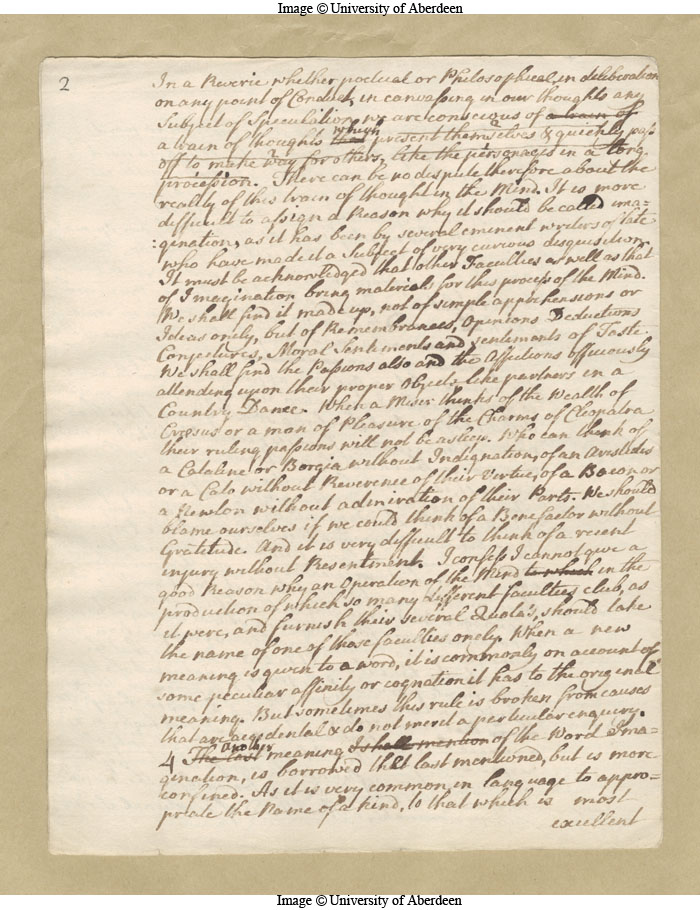 Image © University of Aberdeen
2
In a Reverie whether poetical or Philosophical, in deliberation
on any point of Conduct, in canvassing in our thoughts any
Subject of Speculation, we are conscious of a train of
a train of thoughts that which present themselves & quickly pass
off to make way for others, like the personages in a long
procession. There can be no dispute therefore about the
reality of this train of thought in the Mind. It is more
difficult to assign a Reason why it should be called ima=
:gination, as it has been by several eminent writers of late
who have made it a Subject of very curious disquisition.
It must be acknowledged that other Faculties as well as that
of Imagination bring materials for this process of the Mind.
We shall find it made up, not of simple apprehensions or
Ideas onely, but of Remembrances, Opinions Deductions
Conjectures, Moral Sentiments and, sentiments of Taste.
We shall find the Passions also and the Affections officiously
attending upon their proper Objects like partners in a
Country Dance. When a Miser thinks of the Wealth of
Crœsus or a man of Pleasure of the Charms of Cleopatra
their ruling passions will not be asleep. Who can think of
a Cataline or Borgia without Indignation, of an Aristides
or a Cato without Reverence of their Virtue, of a Bacon or
a Newton without admiration of their Parts. We should
blame ourselves if we could think of a Benefactor without
Gratitude. And it is very difficult to think of a recent
injury without Resentment. I confess I cannot give a
good Reason why an Operation of the Mind to which in the
production of which so many different faculties club, as
it were, and furnish their several Quotas, should take
the name of one of those faculties onely. When a new
meaning is given to a word, it is commonly on account of
some peculiar affinity or cognation it has to the original
meaning. But sometimes this rule is broken from causes
that are accidental & do not merit a particular enquiry.
4 The last another meaning I shall mention of the Word Ima=
gination, is borrowed that last mentioned, but is more
confined. As it is very common, in language to appro=
priate the Name of a kind, to that which is most
excellent
Image © University of Aberdeen